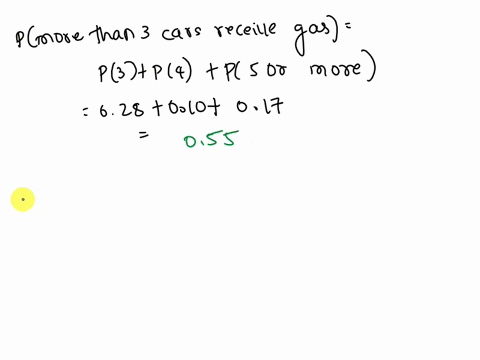 P(more than 3 cars receille gas) =
P(3) + P(4) + P(5 or more)
= 0.28 + 0.10 + 0.17
= 0.55